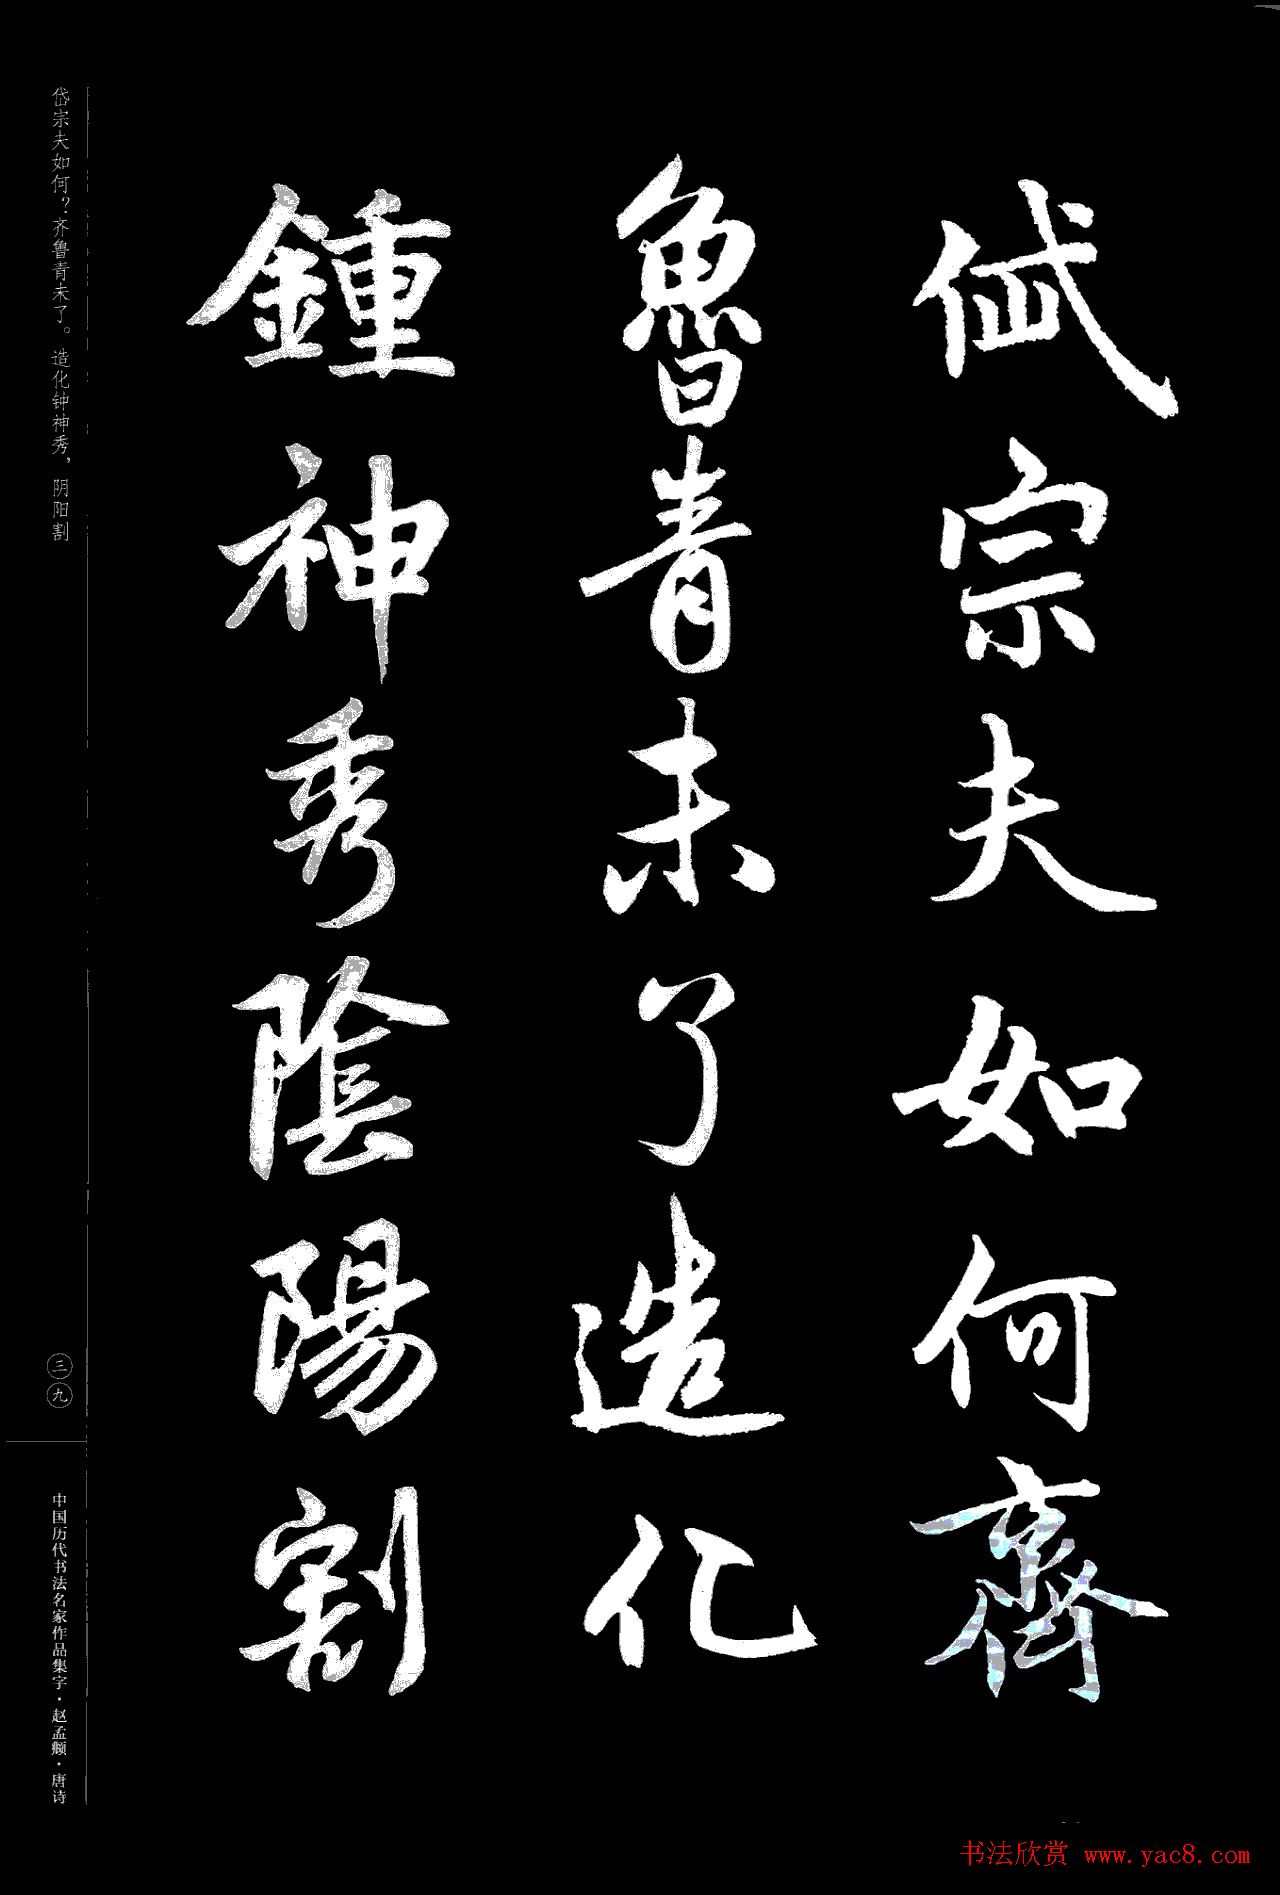 岱宗夫如何齊
魯青未了造化
鍾神秀陰陽割
岱宗夫如何？齐鲁青未了。造化钟神秀，阴阳割
三九
中国历代书法名家作品集字·赵孟頫·唐诗
书法欣赏 www.yac8.com